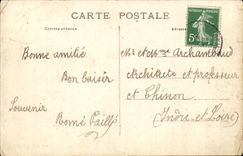 CARTE POSTALE
Correspondance
Adresse
Bonne amitié
Bon baiser
Souvenir
Mr et Mme Archambaud
Architecte et professeur
et Chinon
(Indre et Loire)
5